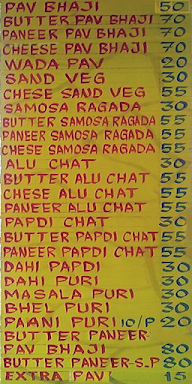 PAV BHAJI 50
BUTTER PAV BHAJI 70
PANEER PAV BHAJI 70
CHEESE PAV BHAJI 70
WADA PAV 20
SAND VEG 30
CHESE SAND VEG 55
SAMOSA RAGADA 30
BUTTER SAMOSA RAGADA 55
PANEER SAMOSA RAGADA 55
CHESE SAMOSA RAGADA 55
ALU CHAT 30
BUTTER ALU CHAT 55
CHESE ALU CHAT 55
PANEER ALU CHAT 55
PAPDI CHAT 30
BUTTER PAPDI CHAT 55
PANEER PAPDI CHAT 55
DAHI PAPDI 30
DAHI PURI 30
MASALA PURI 30
BHEL PURI 30
PAANI PURI 10/P 20
BUTTER PANEER-
PAV BHAJI 80
BUTTER PANEER-S.P 80
EXTRA PAV 15